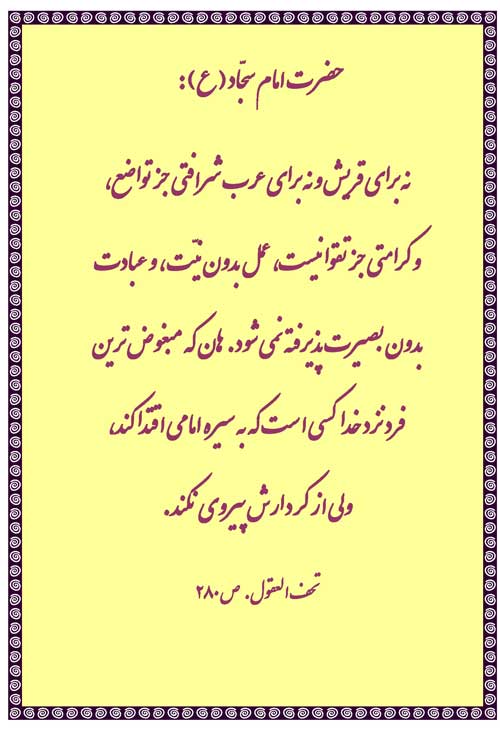 حضرت امام سجّاد (ع):
نه برای قریش و نه برای عرب شرافتی جز تواضع،
و کرامتی جز تقوا نیست، عمل بدون نیّت، و عبادت
بدون بصیرت پذیرفته نمی شود. هان که مبغوض ترین
فرد نزد خدا کسی است که به سیره امامی اقتدا کند،
ولی از کردارش پیروی نکند.
تحف العقول. ص۲۸۰